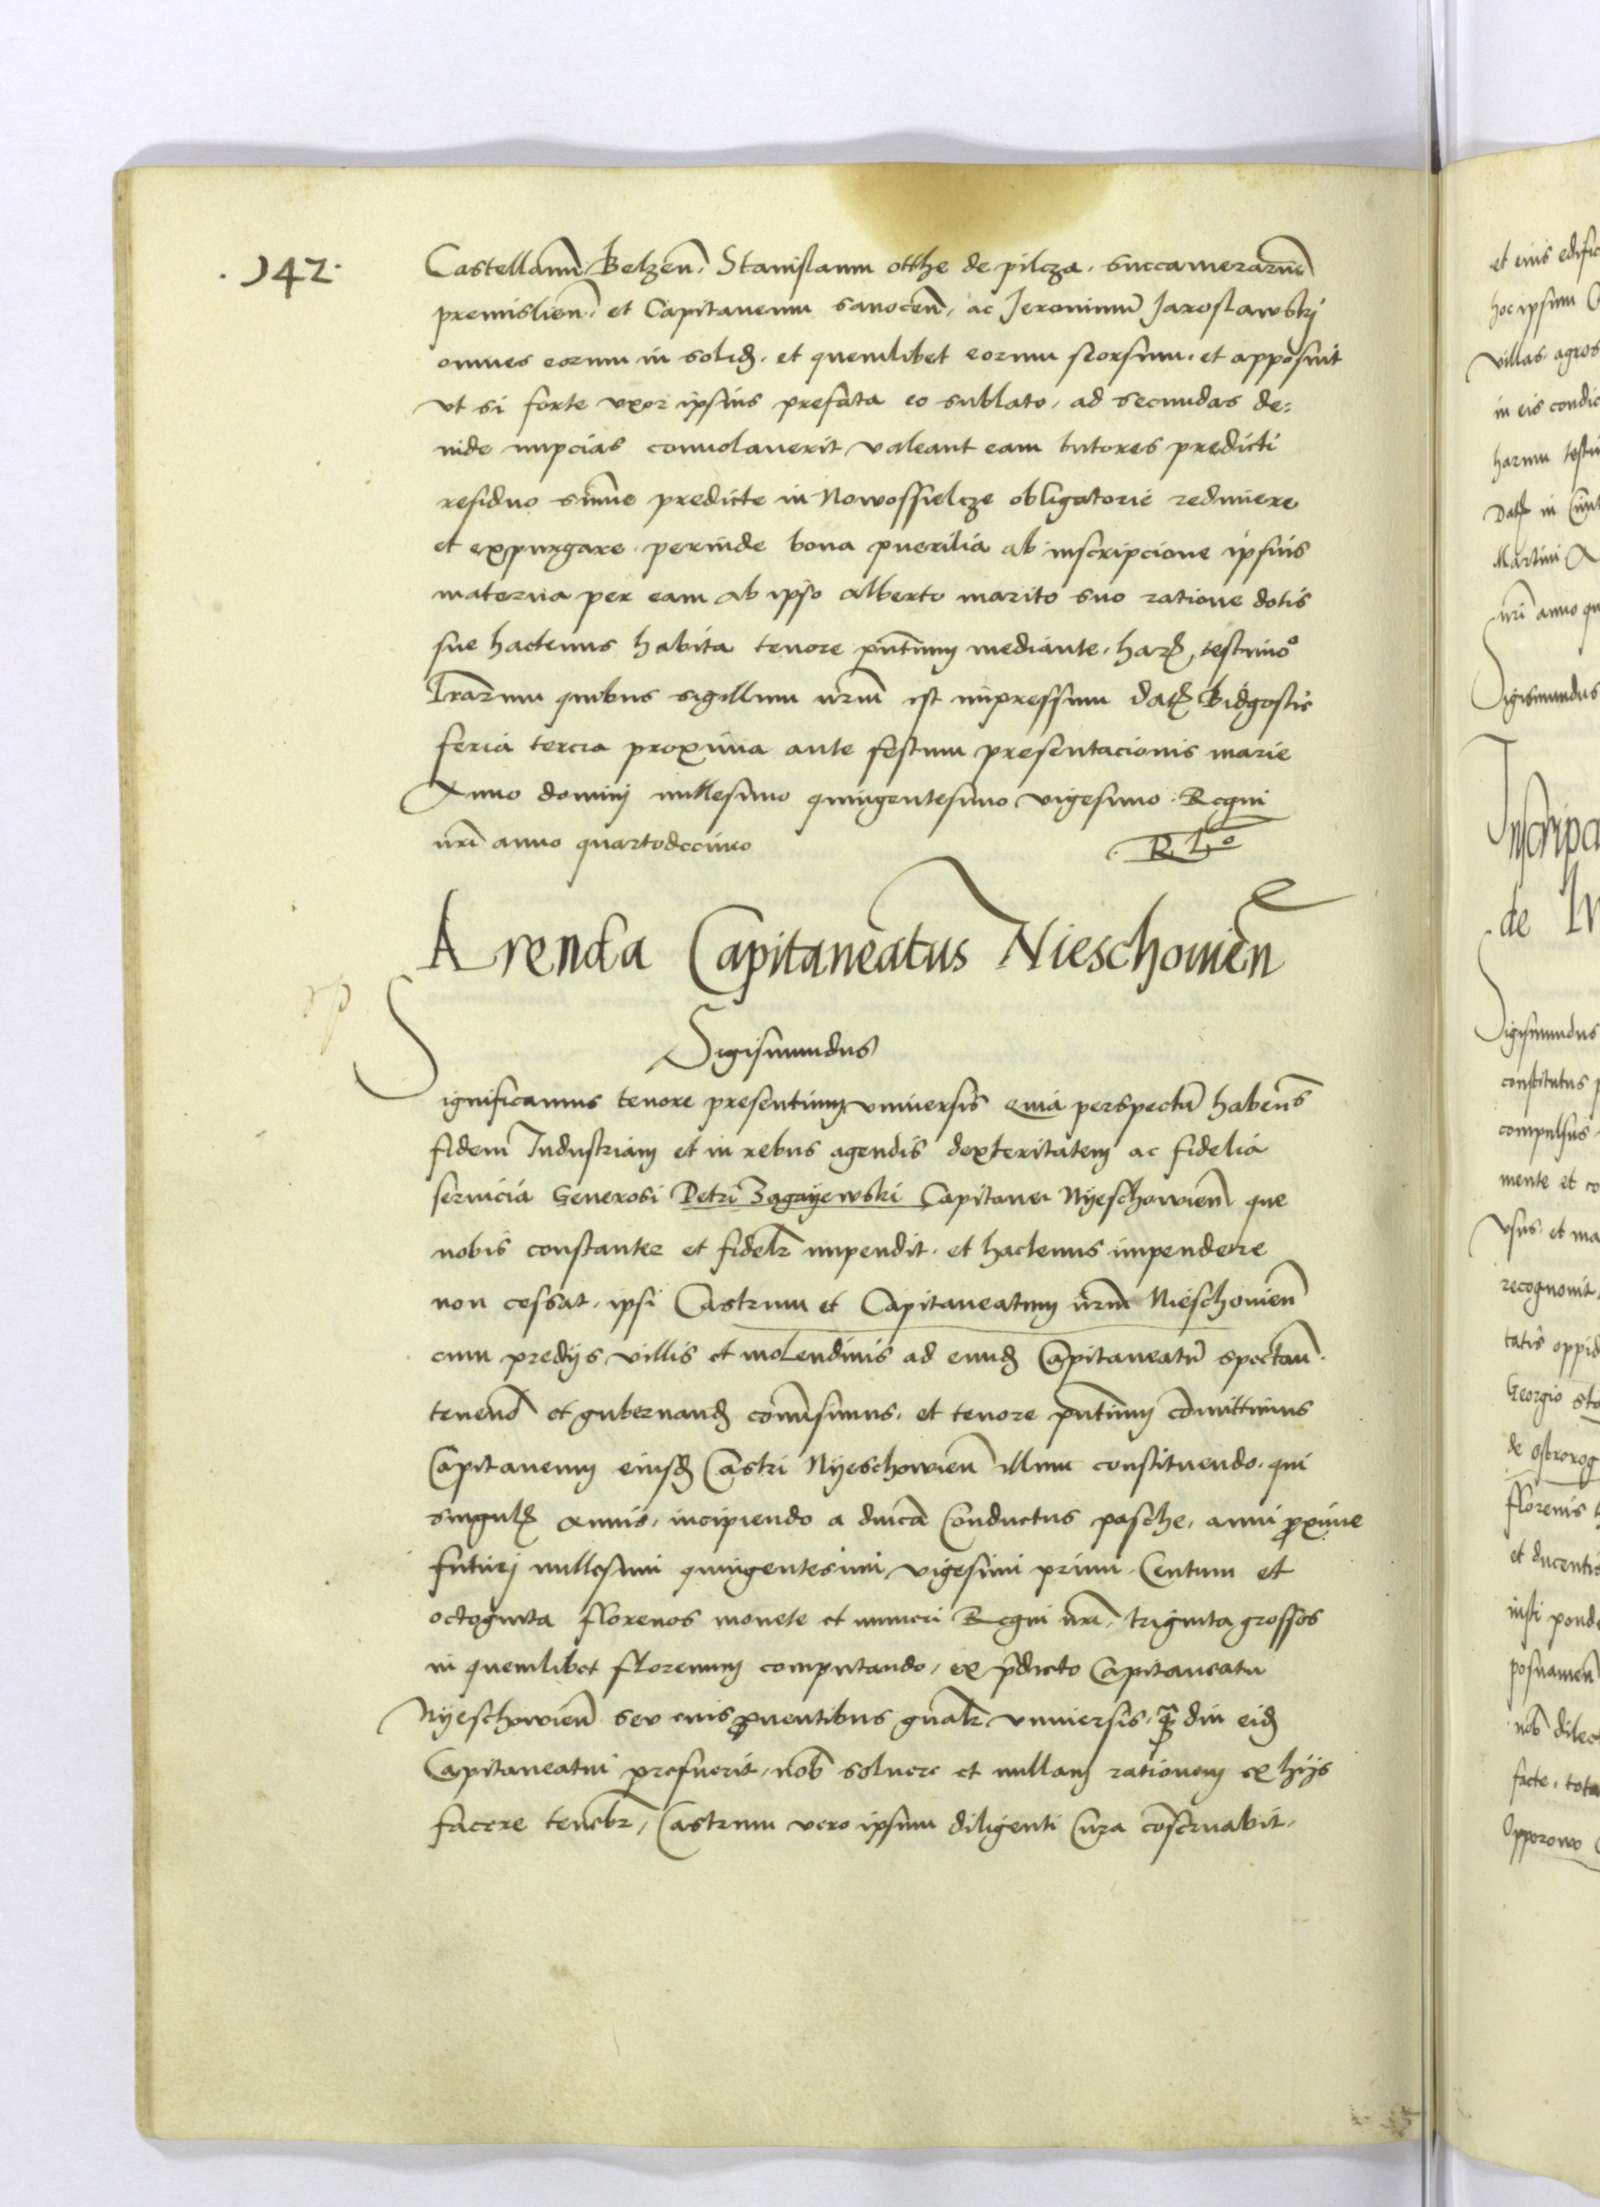 .142.
Castellanũ Belzeñ. Stanislaum otthe de pilcza. succamerariũ
premislieñ. et Capitaneum sanoceñ, ac Jeronimũ Jaroslawskj
omnes eorum in solid. et quemlibet eorum seorsum. et apposuit
vt si forte vxor ipsius prefata eo sublato, ad secundas de:
inde nupcias conuolauerit valeant eam tutores predicti
residuo sũme predicte in Nowossielcze obligatorie redimere
et expurgare. perinde bona puerilia ab inscripcione ipsius
materna per eam ab ipso alberto marito suo ratione dotis
sue hactenus habita tenore pñtium mediante. harũ testimoº
lrarum quibus sigillum nrũm est impressum Dat Bidgostie
feria tercia proxima ante festum presentacionis marie
Anno dominj millesimo quingentesimo vigesimo. Regni
nrĩ anno quartodecimo
Arenda Capitaneatus Nieschouieñ
Sigismundus
Significamus tenore presentium vniuersis Quia perspectã habentes
fidem Industriam et in rebus agendis dexteritatem ac fidelia
seruicia Generosi Petri Zagayewski Capitanei Nyeschowieñ que
nobis constanter et fidelr impendit. et hactenus impendere
non cessat. ipsi Castrum et Capitaneatum nrũm Nieschouieñ
cum predijs villis et molendinis ad eund Capitaneatũ spectañ.
tenend et gubernand cõmisimus. et tenore pñtium cõmittimus
Capitaneum eiusd Castri Nyeschowieñ illum constituendo. qui
singulis annis, incipiendo a dñica Conductus pasche, anni proxime
futurj millesimi quingentesimi vigesimi primi. Centum et
octoginta florenos monete et numeri Regni nrĩ, triginta grossos
in quemlibet florenum computando, ex p̃dicto Capitaneatu
Nyeschowieñ seu eius prouentibus gñalr vniuersis. q̃ diu eid
Capitaneatui prefuerit, nob soluere et nullam rationem ex hijs
facere tenebr, Castrum vero ipsum diligenti Cura cõseruabit.
et eius edific
hoc ipsum
villas. agros
in eis condic
harum testi
Martini
nrĩ anno qu
Sigismundus
Inscripci
de
Sigismundus
constitutus
compulsus
mente et co
vsus. et ma
recognouit.
tatis oppid
Georgio sto
de ostrorog
florenis
et ducentis
iusti ponde
posnanieñ
nob dilec
facte. tota
Opporowo